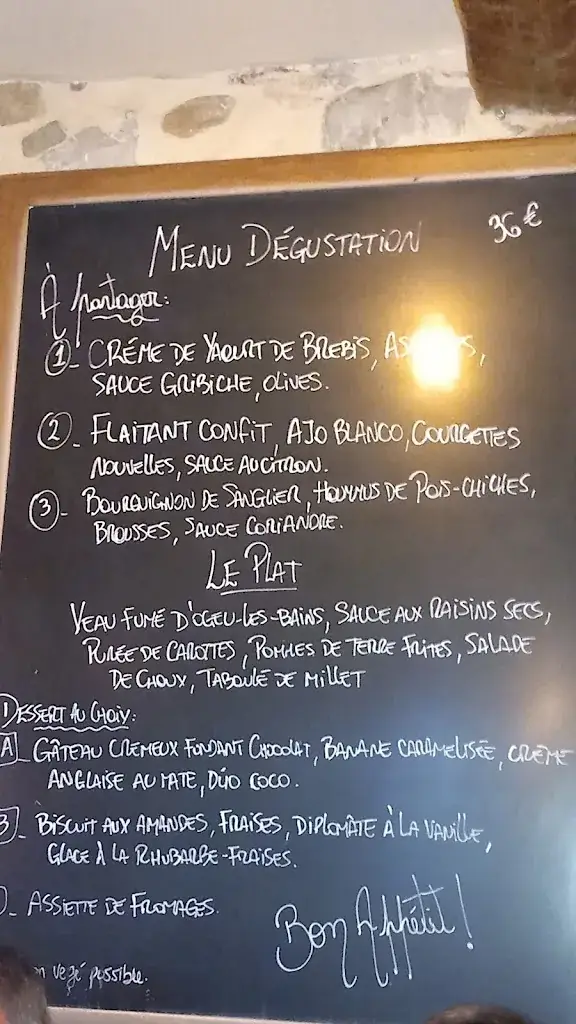 MENU DÉGUSTATION
36 €
À partager:
1 - CRÉME DE YAOURT DE BREBIS,
SAUCE GRIBICHE, OLIVES.
2 - FLAITANT CONFIT, AJO BLANCO, COURGETTES
NOUVELLES, SAUCE AU CITRON.
3 - BOURGUIGNON DE SANGLIER, HOUMMUS DE POIS-CHICHES,
BROUSSES, SAUCE CORIANDRE.
LE PLAT
VEAU FUMÉ D'OGEU-LES-BAINS, SAUCE AUX RAISINS SECS,
PURÉE DE CAROTTES, POMMES DE TERRE FRITES, SALADE
DE CHOUX, TABOULÉ DE MILLET
1 DESSERT AU CHOIX:
A - GÂTEAU CREMEUX FONDANT CHOCOLAT, BANANE CARAMELISÉE, CRÈME
ANGLAISE AU MATE, DUO COCO.
B - BISCUIT AUX AMANDES, FRAISES, DIPLOMÂTE À LA VANILLE,
GLACE À LA RHUBARBE-FRAISES.
- ASSIETTE DE FROMAGES.
Bon Appétit !
végé possible.